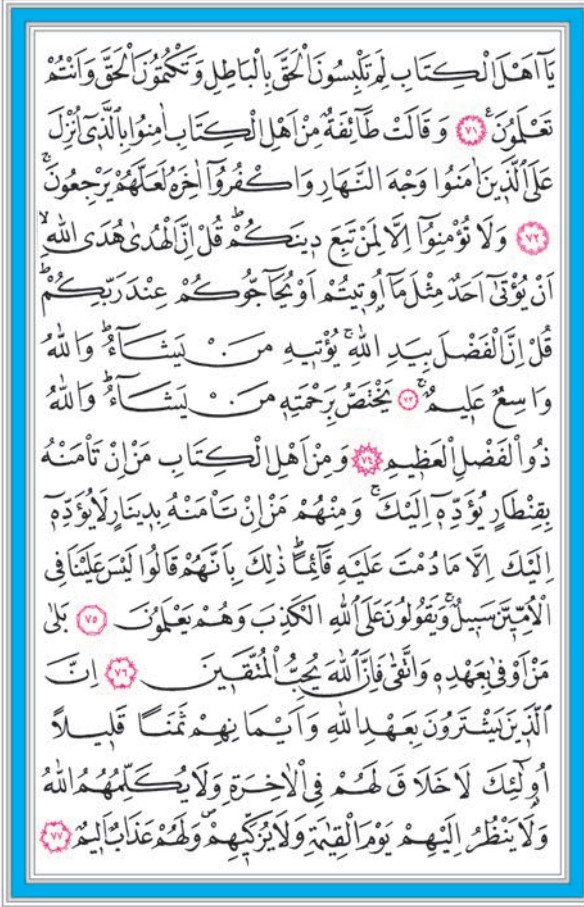 يَٓا اَهْلَ الْكِتَابِ لِمَ تَلْبِسُونَ الْحَقَّ بِالْبَاطِلِ وَتَكْتُمُونَ الْحَقَّ وَاَنْتُمْ
تَعْلَمُونَ۟ ﴿٧١﴾ وَقَالَتْ طَٓائِفَةٌ مِنْ اَهْلِ الْكِتَابِ اٰمِنُوا بِالَّذ۪ٓي اُنْزِلَ
عَلَى الَّذ۪ينَ اٰمَنُوا وَجْهَ النَّهَارِ وَاكْفُرُٓوا اٰخِرَهُ لَعَلَّهُمْ يَرْجِعُونَۚ
﴿٧٢﴾ وَلَا تُؤْمِنُٓوا اِلَّا لِمَنْ تَبِعَ د۪ينَكُمْۜ قُلْ اِنَّ الْهُدٰى هُدَى اللّٰهِۙ
اَنْ يُؤْتٰٓى اَحَدٌ مِثْلَ مَٓا اُو۫ت۪يتُمْ اَوْ يُحَٓاجُّوكُمْ عِنْدَ رَبِّكُمْۜ
قُلْ اِنَّ الْفَضْلَ بِيَدِ اللّٰهِۚ يُؤْت۪يهِ مَنْ يَشَٓاءُۜ وَاللّٰهُ
وَاسِعٌ عَل۪يمٌۚ ﴿٧٣﴾ يَخْتَصُّ بِرَحْمَتِه۪ مَنْ يَشَٓاءُۜ وَاللّٰهُ
ذُو الْفَضْلِ الْعَظ۪يمِ ﴿٧٤﴾ وَمِنْ اَهْلِ الْكِتَابِ مَنْ اِنْ تَأْمَنْهُ
بِقِنْطَارٍ يُؤَدِّه۪ٓ اِلَيْكَۚ وَمِنْهُمْ مَنْ اِنْ تَأْمَنْهُ بِد۪ينَارٍ لَا يُؤَدِّه۪ٓ
اِلَيْكَ اِلَّا مَا دُمْتَ عَلَيْهِ قَٓائِمًاۜ ذٰلِكَ بِاَنَّهُمْ قَالُوا لَيْسَ عَلَيْنَا فِي
الْاُمِّيّ۪نَ سَب۪يلٌۚ وَيَقُولُونَ عَلَى اللّٰهِ الْكَذِبَ وَهُمْ يَعْلَمُونَ ﴿٧٥﴾ بَلٰى
مَنْ اَوْفٰى بِعَهْدِه۪ وَاتَّقٰى فَاِنَّ اللّٰهَ يُحِبُّ الْمُتَّق۪ينَ ﴿٧٦﴾ اِنَّ
الَّذ۪ينَ يَشْتَرُونَ بِعَهْدِ اللّٰهِ وَاَيْمَانِهِمْ ثَمَنًا قَل۪يلًا
اُو۬لٰٓئِكَ لَا خَلَاقَ لَهُمْ فِي الْاٰخِرَةِ وَلَا يُكَلِّمُهُمُ اللّٰهُ
وَلَا يَنْظُرُ اِلَيْهِمْ يَوْمَ الْقِيٰمَةِ وَلَا يُزَكّ۪يهِمْۖ وَلَهُمْ عَذَابٌ اَل۪يمٌ ﴿٧٧﴾